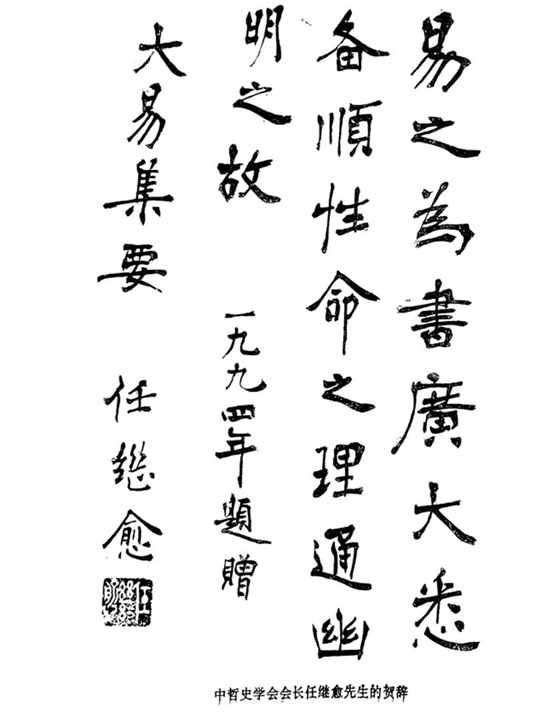 易之為書廣大悉
备順性命之理通幽
明之故
一九九四年題贈
大易集要
任继愈
中哲史学会会长任继愈先生的贺辞